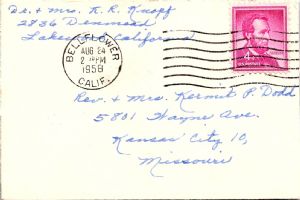 Dr. & Mrs. K. R. Knopf
2836 Denmead
Lakewood California
BELLFLOWER
AUG 24
2 PM
1958
CALIF.
4¢
U.S. POSTAGE
Rev. & Mrs. Kermit P. Dodd
5801 Wayne Ave.
Kansas City 10,
Missouri